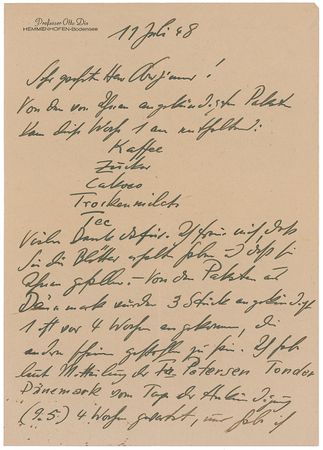 Professor Otto Dix
HEMMENHOFEN-Bodensee
11 Juli 48
Sehr geehrter Herr !
Von den von Ihnen angekündigten Paketen
kam diese Woche 1 an enthaltend:
Kaffee
Zucker
Cakao
Trockenmilch
Tee
Vielen Dank dafür. Ich freue mich daß
Sie die Blätter erhalten haben u daß sie
Ihnen gefallen. – Von den Paketen aus
Dänemark wurden 3 Stück angekündigt
1 ist vor 4 Wochen angekommen, die
andern scheinen gestohlen zu sein. Ich habe
laut Mitteilung der Fa Petersen Tonder
Dänemark vom Tage der Ankündigung
(9.5.) 4 Wochen gewartet, und habe ich